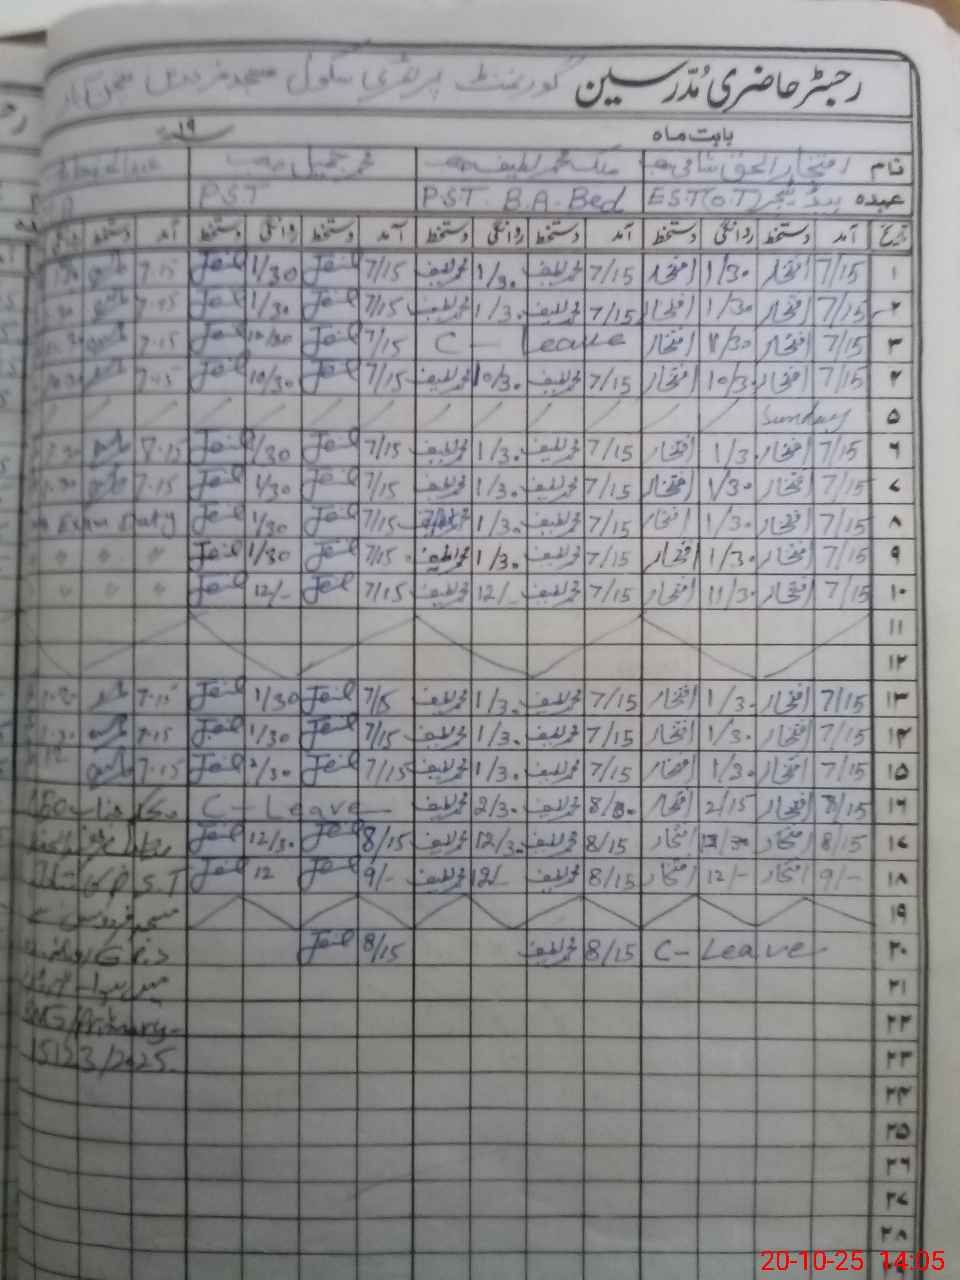 رجسٹر حاضری مُدّرسین گورنمنٹ پرائمری سکول مسجد فردوس
بابت ماہ ۱۹
نام افتخار الحق ملک محمد لطیف محمد جمیل صاحب
عہدہ ہیڈ ٹیچر EST(O.T) P.S.T. B.A-Bed P.S.T
تاریخ آمد دستخط روانگی دستخط آمد دستخط روانگی دستخط آمد دستخط روانگی دستخط آمد دستخط
۱ 7/15 افتخار 1/30 افتخار 7/15 محمد لطیف 1/30 محمد لطیف 7/15 Jamil 1/30 Jamil 7.15
۲ 7/15 افتخار 1/30 افتخار 7/15 محمد لطیف 1/30 محمد لطیف 7/15 Jamil 1/30 Jamil 7.15
۳ 7/15 افتخار 1/30 افتخار C- Leave 7/15 Jamil 10/30 Jamil 7.15
۴ 7/15 افتخار 10/30 افتخار 7/15 محمد لطیف 10/30 محمد لطیف 7/15 Jamil 10/30 Jamil 7.15
۵ Sunday
۶ 7/15 افتخار 1/30 افتخار 7/15 محمد لطیف 1/30 محمد لطیف 7/15 Jamil 1/30 Jamil 7.15
۷ 7/15 افتخار 1/30 افتخار 7/15 محمد لطیف 1/30 محمد لطیف 7/15 Jamil 1/30 Jamil 7.15
۸ 7/15 افتخار 1/30 افتخار 7/15 محمد لطیف 1/30 محمد لطیف 7/15 Jamil 1/30 Jamil Exam Duty
۹ 7/15 افتخار 1/30 افتخار 7/15 محمد لطیف 1/30 محمد لطیف 7/15 Jamil 1/30 Jamil " " "
۱۰ 7/15 افتخار 11/30 افتخار 7/15 محمد لطیف 12/- محمد لطیف 7/15 Jamil 12/- Jamil " " "
۱۱
۱۲
۱۳ 7/15 افتخار 1/30 افتخار 7/15 محمد لطیف 1/30 محمد لطیف 7/5 Jamil 1/30 Jamil 7.15
۱۴ 7/15 افتخار 1/30 افتخار 7/15 محمد لطیف 1/30 محمد لطیف 7/15 Jamil 1/30 Jamil 7.15
۱۵ 7/15 افتخار 1/30 افتخار 7/15 محمد لطیف 1/30 محمد لطیف 7/15 Jamil 1/30 Jamil 7.15 12
۱۶ 8/15 افتخار 2/15 افتخار محمد لطیف 2/30 محمد لطیف C- Leave جناب AEO
۱۷ 8/15 افتخار افتخار 8/15 محمد لطیف 12/30 محمد لطیف 8/15 Jamil 12/30 Jamil
۱۸ 9/- افتخار 12/- افتخار 8/15 محمد لطیف 12/- محمد لطیف 9/- Jamil 12 Jamil P.S.T
۱۹ مسجد فردوس سے
۲۰ C- Leave 8/15 محمد لطیف 8/15 Jamil
۲۱ میں
۲۲ Primary-
۲۳ 15123/2025.
۲۴
۲۵
۲۶
۲۷
۲۸
20-10-25 14:05